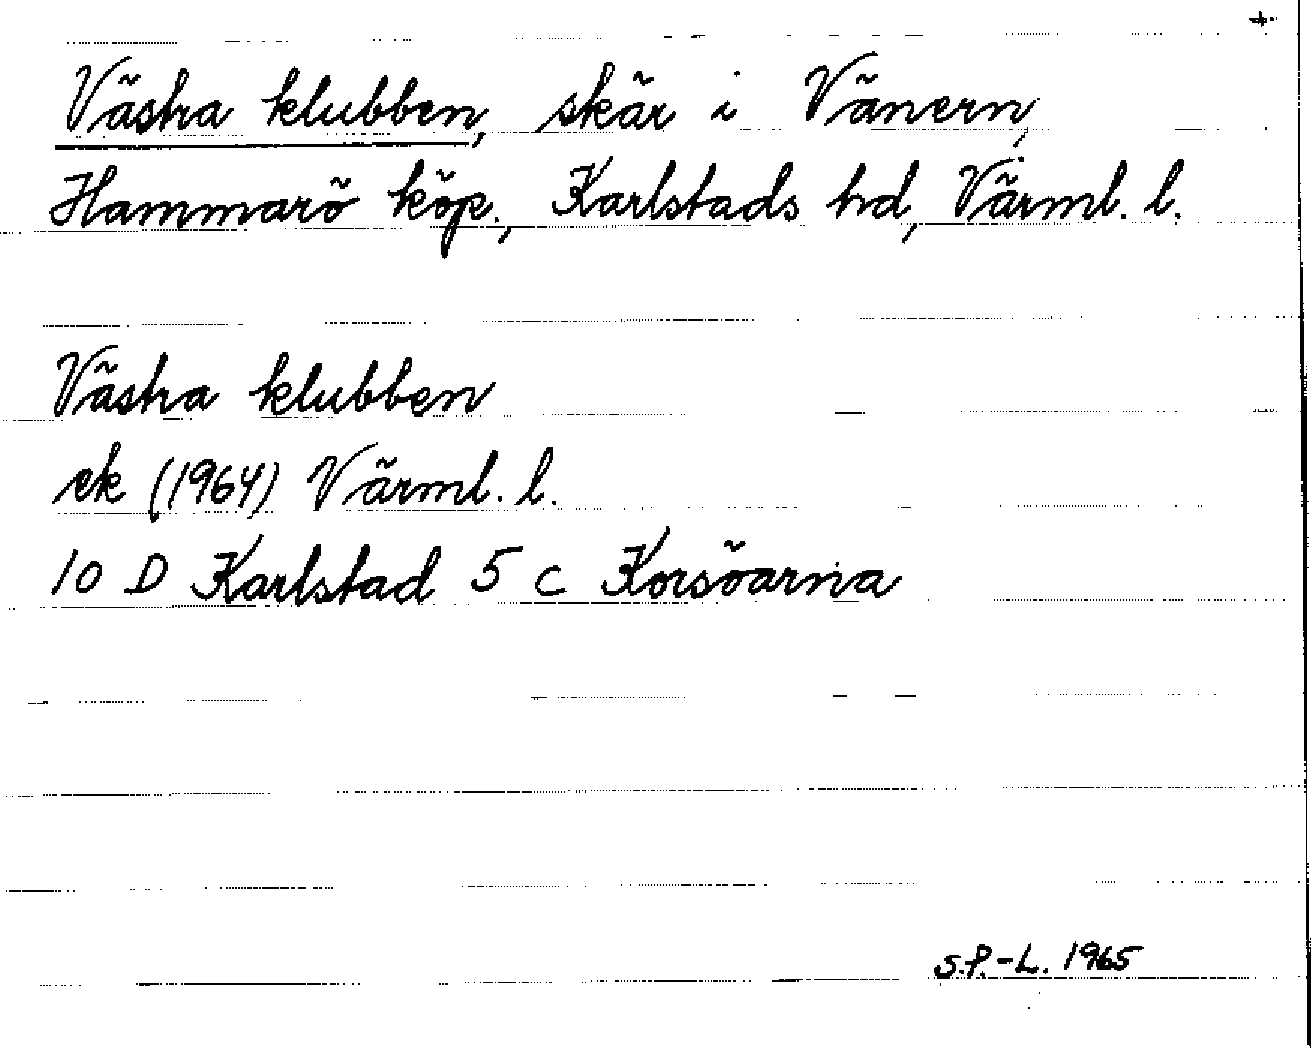 +
Västra klubben, skär i Vänern,
Hammarö köp., Karlstads hd, Värml. l.
Västra klubben
ek (1964) Värml. l.
10 D Karlstad 5 c Korsöarna
S.P.-L. 1965